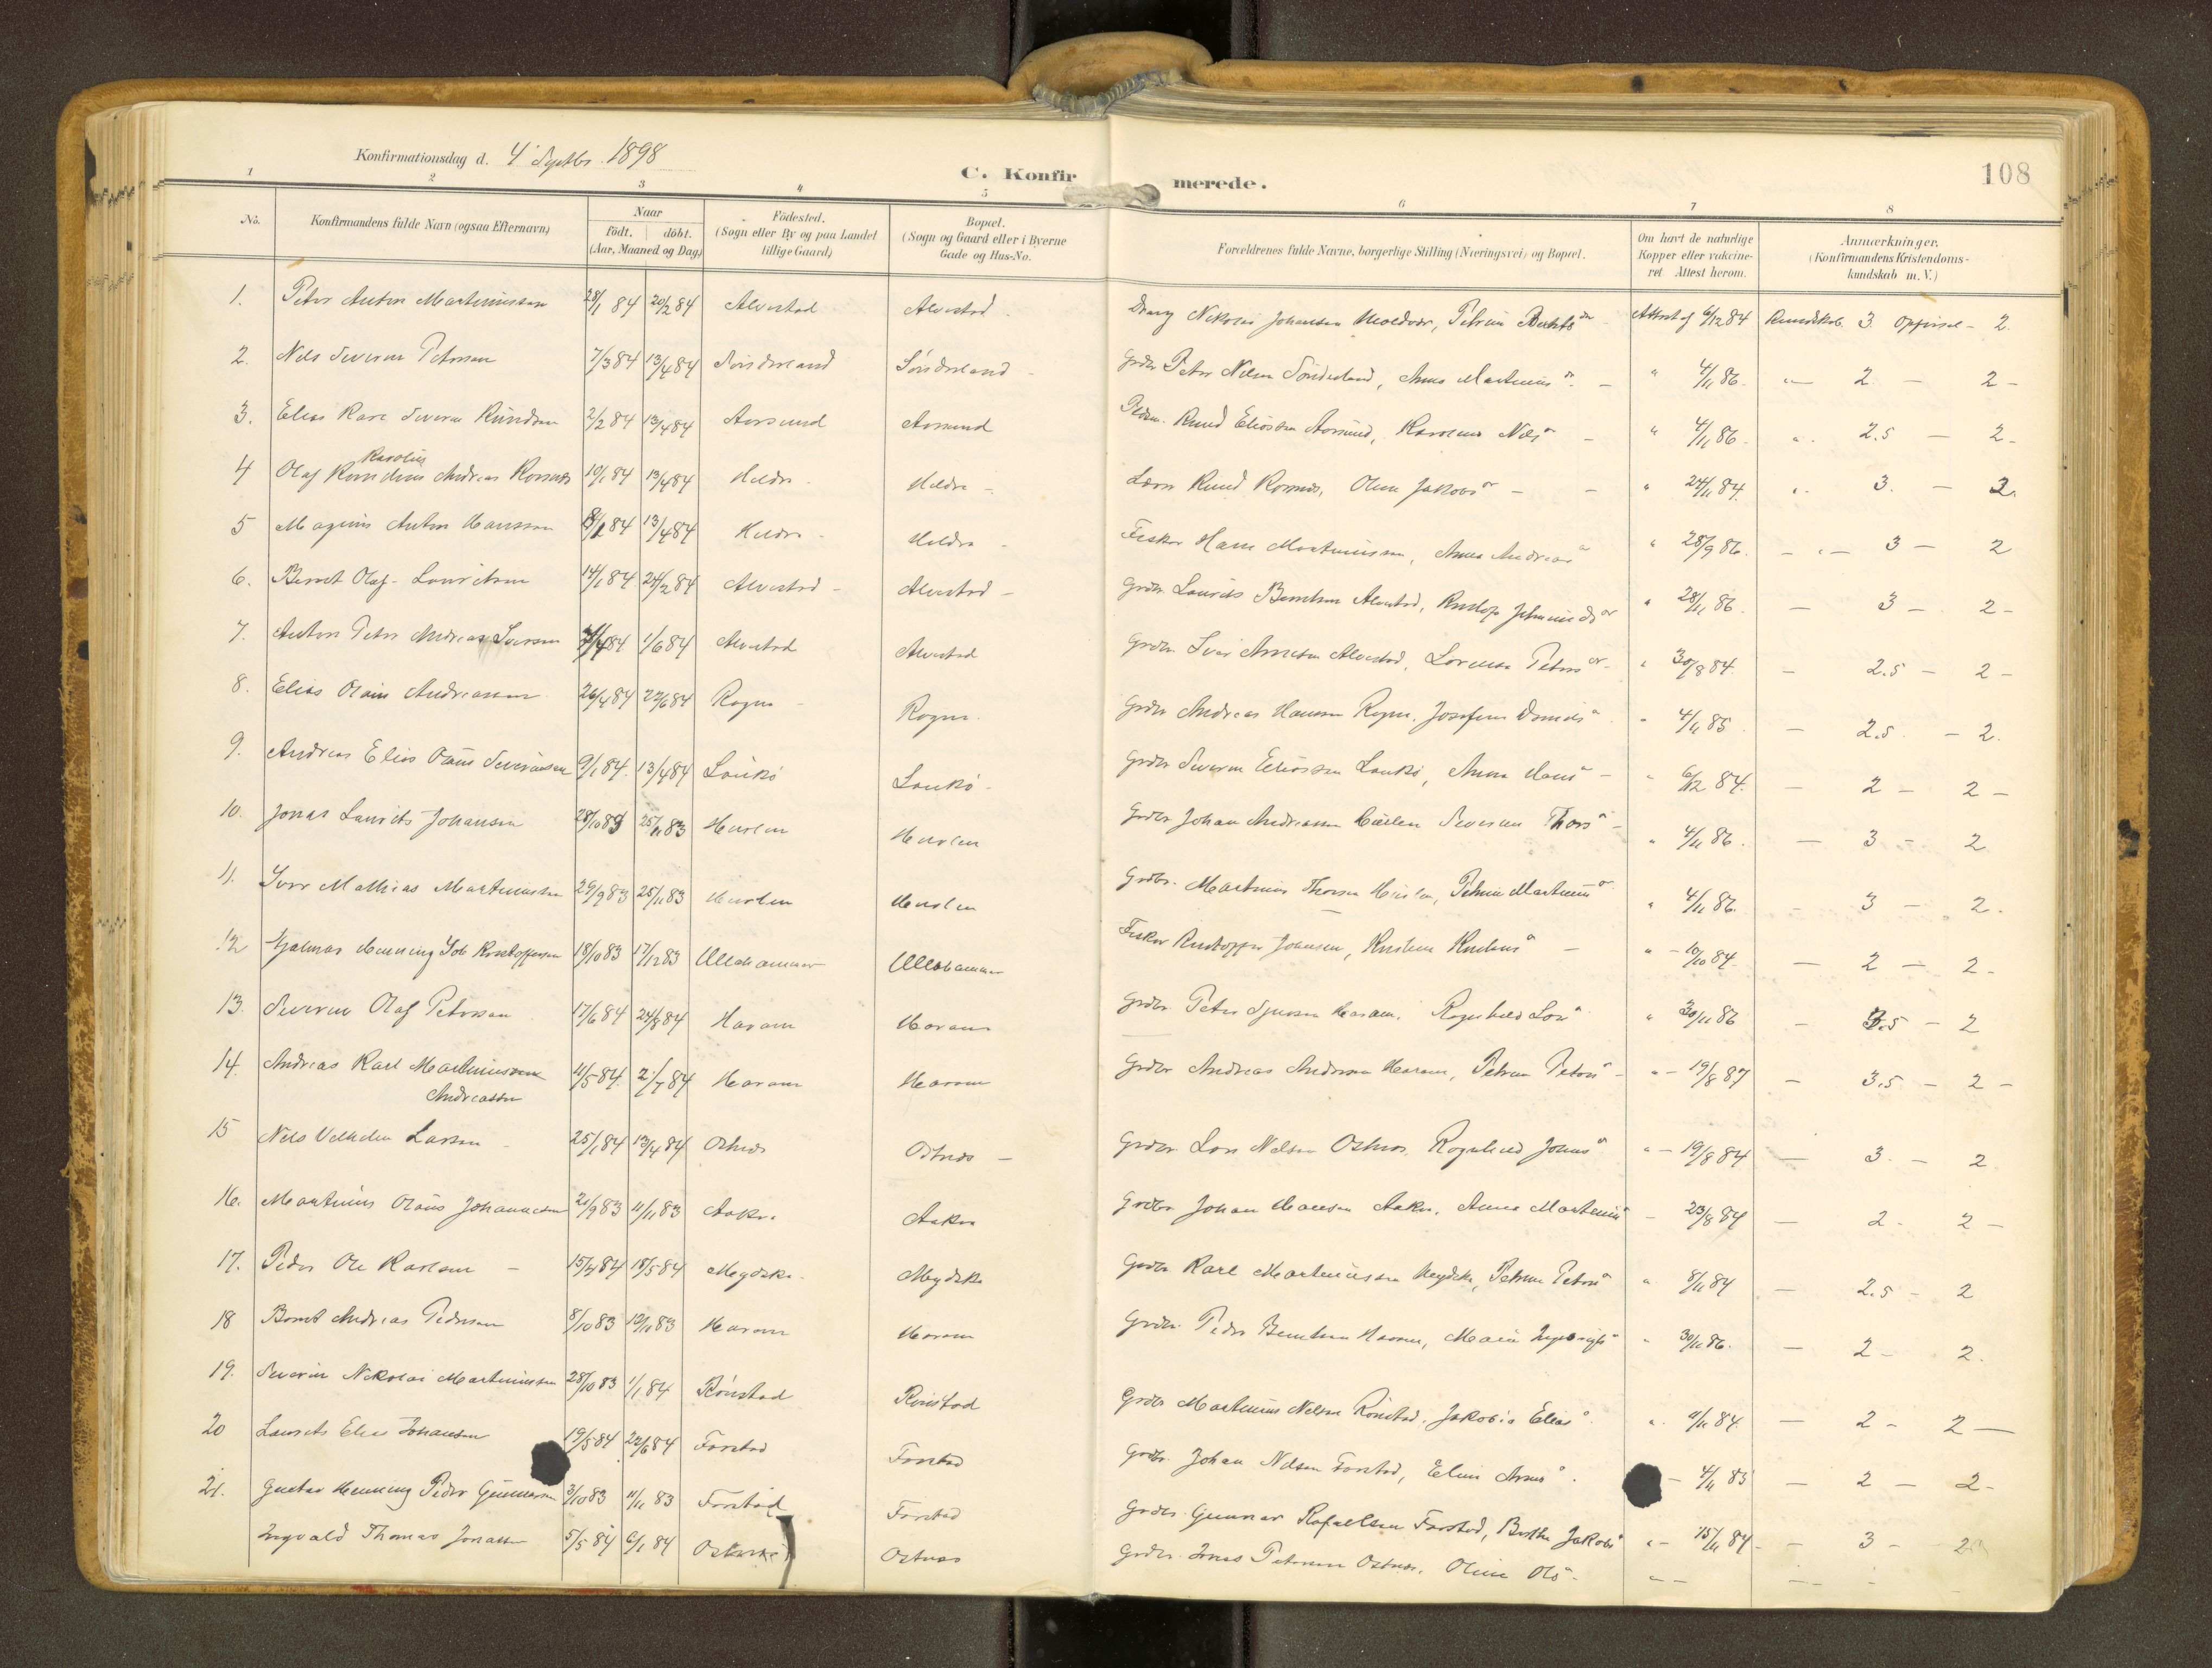 Konfirmationsdag d. 4 Septbr. 1898
C. Konfirmerede.
108
1 2 3 4 5 6 7 8
No. Konfirmandens fulde Navn (ogsaa Efternavn) Naar födt. döbt. (Aar, Maaned og Dag) Födested. (Sogn eller By og paa Landet tillige Gaard) Bopæl. (Sogn og Gaard eller i Byerne Gade og Hus-No. Forældrenes fulde Navne, borgerlige Stilling (Næringsvei) og Bopæl. Om havt de naturlige Kopper eller vakcineret Attest herom. Anmærkninger. (Konfirmandens Kristendomskundskab m. V.)
1. Peter Anton Martinussen 28/1 84 20/2 84 Alvestad Alvestad. Nikolai Johansen Attest af 6/12 84 Kundskab. 3. Opførsel - 2.
2. Nils Severin Petersen 7/3 84 13/4 84 Sönderland Sönderland - Grdbr. Peter Nilsen Sönderland, Anna Martinus dr. - " 4/11 86. " 2. - 2 -
3. Elias Karl Severin Knudsen 2/2 84 13/4 84 Aorsund Aorsund Knud Eliassen Aorsund, Karoline Nils - " 4/11 86 - " 2.5 - 2 -
4 Olaf Karolius Andreas 10/1 84 13/4 84 Hildre - Hildre - Knud Oline Jakobs dr - " 24/11 84. " 3. - 2.
5 Magnus Anton Hanssen 84 13/4 84 Hildre - Hildre - Fisker Hans Martinussen, Anna Andreas " 28/9 86. - " - 3 - 2
6. Bernt Olaf Lauritsen 14/1 84 24/2 84 Alvestad - Alvestad - Grdbr. Laurits Berntsen Alvestad, " 28/11 86. - 3 - 2 -
7. Anton Peter Andreas Iversen 84 1/6 84 Alvestad Alvestad Grdbr. Iver Alvestad, Lorense Peters dr - " 30/8 84. - 2.5 - 2 -
8. Elias Olaus Andreassen 26/4 84 22/6 84 Rogne - Rogne. Grdbr. Andreas Hansen Rogne. Josefine Daniels " 4/11 85 - 2.5 - 2.
9. Andreas Elias Olaus Severinsen 9/1 84. 13/4 84 Laukö Laukö - Grdbr. Severin Eliassen Laukö, Anna Hans - " 6/12 84. - 2 - 2 -
10. Jonas Laurits Johansen 28/10 83 25/11 83 Huslen Huslen Grdbr. Johan Andreassen Severine Thors - " 4/11 86. - 3 - 2
11. Iver Mathias Martinussen 29/9 83 25/11 83 Huslen Huslen Grdbr. Martinus Thorsen Petrine Martinus " 4/11 86. - 3 - 2.
12 Hjalmar Henning Job Kristoffersen 18/10 83 17/12 83 Ullahammer Ullahammer Fisker Kristoffer Johansen, - " - 10/10 84. - 2 - 2 -
13. Severin Olaf Petersen 17/6 84 24/8 84 Haram Haram Grdbr. Peter Haram, Ragnhild " 30/11 86 - 3.5 - 2
14. Andreas Karl Martinussen Andreassen 11/5 84. 2/7 84 Haram Haram Grdbr. Andreas Andersen Haram, Petrine Peters - " - 19/8 87 - 3.5 - 2 -
15 Nils Vilhelm Larsen - 25/1 84 13/4 84 Ostnes Ostnes - Grdbr. Lars Nilsen Ostnes. Ragnhild Johns " - 19/8 84 - 3. - 2
16. Martinus Olaus Johannesen 21/9 83 11/11 83 Aakre Aakre Grdbr. Johan Hansen Aakre, Anna Martinus - 23/8 84 - 2 - 2 -
17. Peder Ole Karlsen - 15/4 84 18/5 84 Megdske Megdske Grdbr. Karl Martinussen Petrine Peters " 8/11 84 - 2.5 - 2
18 Bernt Andreas Pedersen 8/10 83 83 Haram Haram Grdbr. Peder Berntsen Haram, " 30/11 86. - 2 - 2.
19. Severin Nikolai Martinussen 28/10 83 1/1 84 Rönstad Rönstad Grdbr. Martinus Nilsen Rönstad. Jakobia Elias " 84. - 2 - 2 -
20 Laurits Elias Johansen 19/5 84 22/6 84 Farstad Farstad Grdbr. Johan Nilsen Farstad, Eline - 4/11 83 - 2 - 2 -
21. Gustav Henning Peder Gunnarsen 3/10 83 11/11 83 Farstad Farstad Grdbr. Gunnar Rafaelsen Farstad, Berthe Jakobs " - 15/11 84 - 3 - 2
Ingvald Thomas Jonassen 5/5 84 6/1 84 Ostnes Ostnes Grdbr. Jonas Petersen Ostnes. Oline Ols -